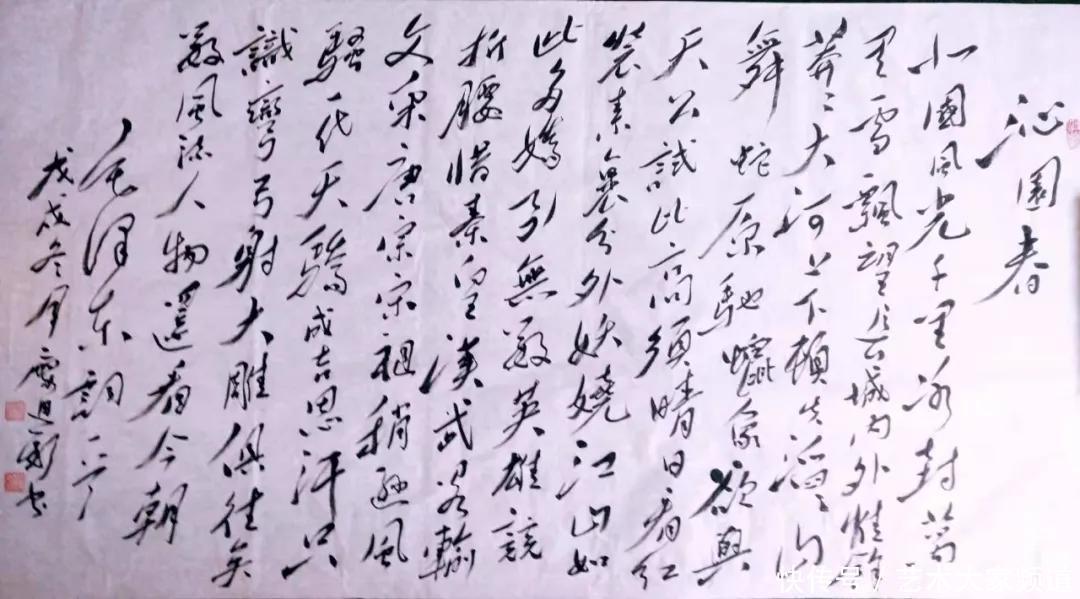 沁園春
北國風光千里冰封萬
里雪飄望長城內外惟餘
莽〻大河上下頓失滔〻山
舞蛇原馳蠟象欲與
天公試比高須晴日看紅
裝素裹分外妖嬈江山如
此多嬌引無數英雄競
折腰惜秦皇漢武略輸
文采唐宗宋祖稍遜風
騷一代天驕成吉思汗只
識彎弓射大雕俱往矣
數風流人物還看今朝
毛澤東詞一首
戊戌冬月 書
快传号 / 艺术大家频道